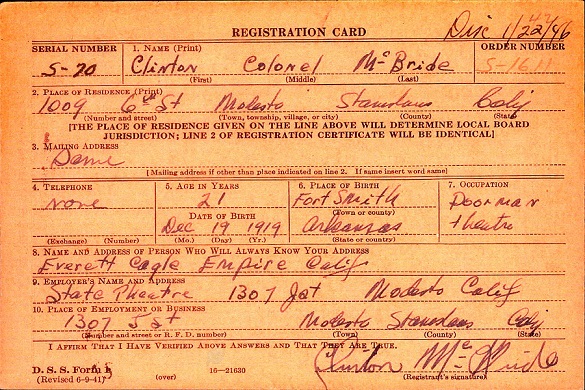 REGISTRATION CARD
Disc 1/22/46
SERIAL NUMBER
1. NAME (Print)
ORDER NUMBER
S-70
Clinton Colonel McBride
S-1611
(First) (Middle) (Last)
2. PLACE OF RESIDENCE (Print)
1009 6th St Modesto Stanislaus Calif
(Number and street) (Town, township, village, or city) (County) (State)
[THE PLACE OF RESIDENCE GIVEN ON THE LINE ABOVE WILL DETERMINE LOCAL BOARD
JURISDICTION; LINE 2 OF REGISTRATION CERTIFICATE WILL BE IDENTICAL]
3. MAILING ADDRESS
Same
[Mailing address if other than place indicated on line 2. If same insert word same]
4. TELEPHONE
5. AGE IN YEARS
6. PLACE OF BIRTH
7. OCCUPATION
none
21
Fort Smith
Doorman
(Town or county)
DATE OF BIRTH
Dec 19 1919
Arkansas
theatre
(Exchange) (Number)
(Mo.) (Day) (Yr.)
(State or country)
8. NAME AND ADDRESS OF PERSON WHO WILL ALWAYS KNOW YOUR ADDRESS
Everett Cagle Empire Calif
9. EMPLOYER'S NAME AND ADDRESS
State Theatre 1307 J st Modesto Calif
10. PLACE OF EMPLOYMENT OR BUSINESS
1307 J St Modesto Stanislaus Calif
(Number and street or R. F. D. number) (Town) (County) (State)
I AFFIRM THAT I HAVE VERIFIED ABOVE ANSWERS AND THAT THEY ARE TRUE.
Clinton McBride
D. S. S. Form 1
(Revised 6-9-41)
(over)
16—21630
(Registrant's signature)